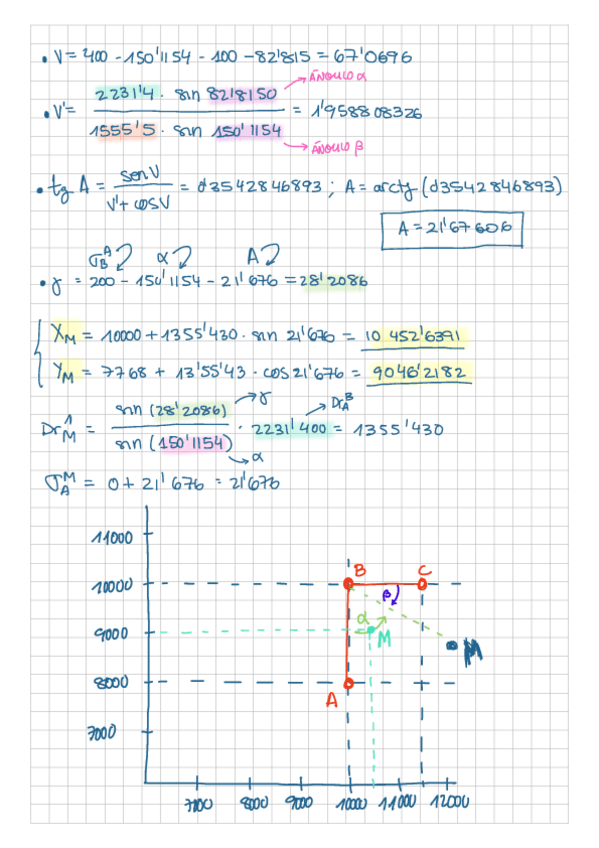 • V = 400 - 150'1154 - 100 - 82'815 = 67'0696
• V' = 2231'4 · sin 82'8150 / 1555'5 · sin 150'1154 = 1'958808326
ÁNGULO α
ÁNGULO β
• tg A = sen V / V' + cos V = 0'35428 46893 ; A = arctg (0'35428 46893)
A = 21'67 606
σ_B^A α A
• γ = 200 - 150'1154 - 21'676 = 28'2086
X_M = 10000 + 1355'430 · sin 21'676 = 10 452'6391
Y_M = 7768 + 13'55'43 · cos 21'676 = 9046'2182
Dr_M^1 = sin (28'2086) / sin (150'1154) · 2231'400 = 1355'430
γ
Dr_A^B
α
σ_A^M = 0 + 21'676 = 21'676
11000
10000
9000
8000
7000
B C
β
α
M
M
A
7000 8000 9000 10000 11000 12000